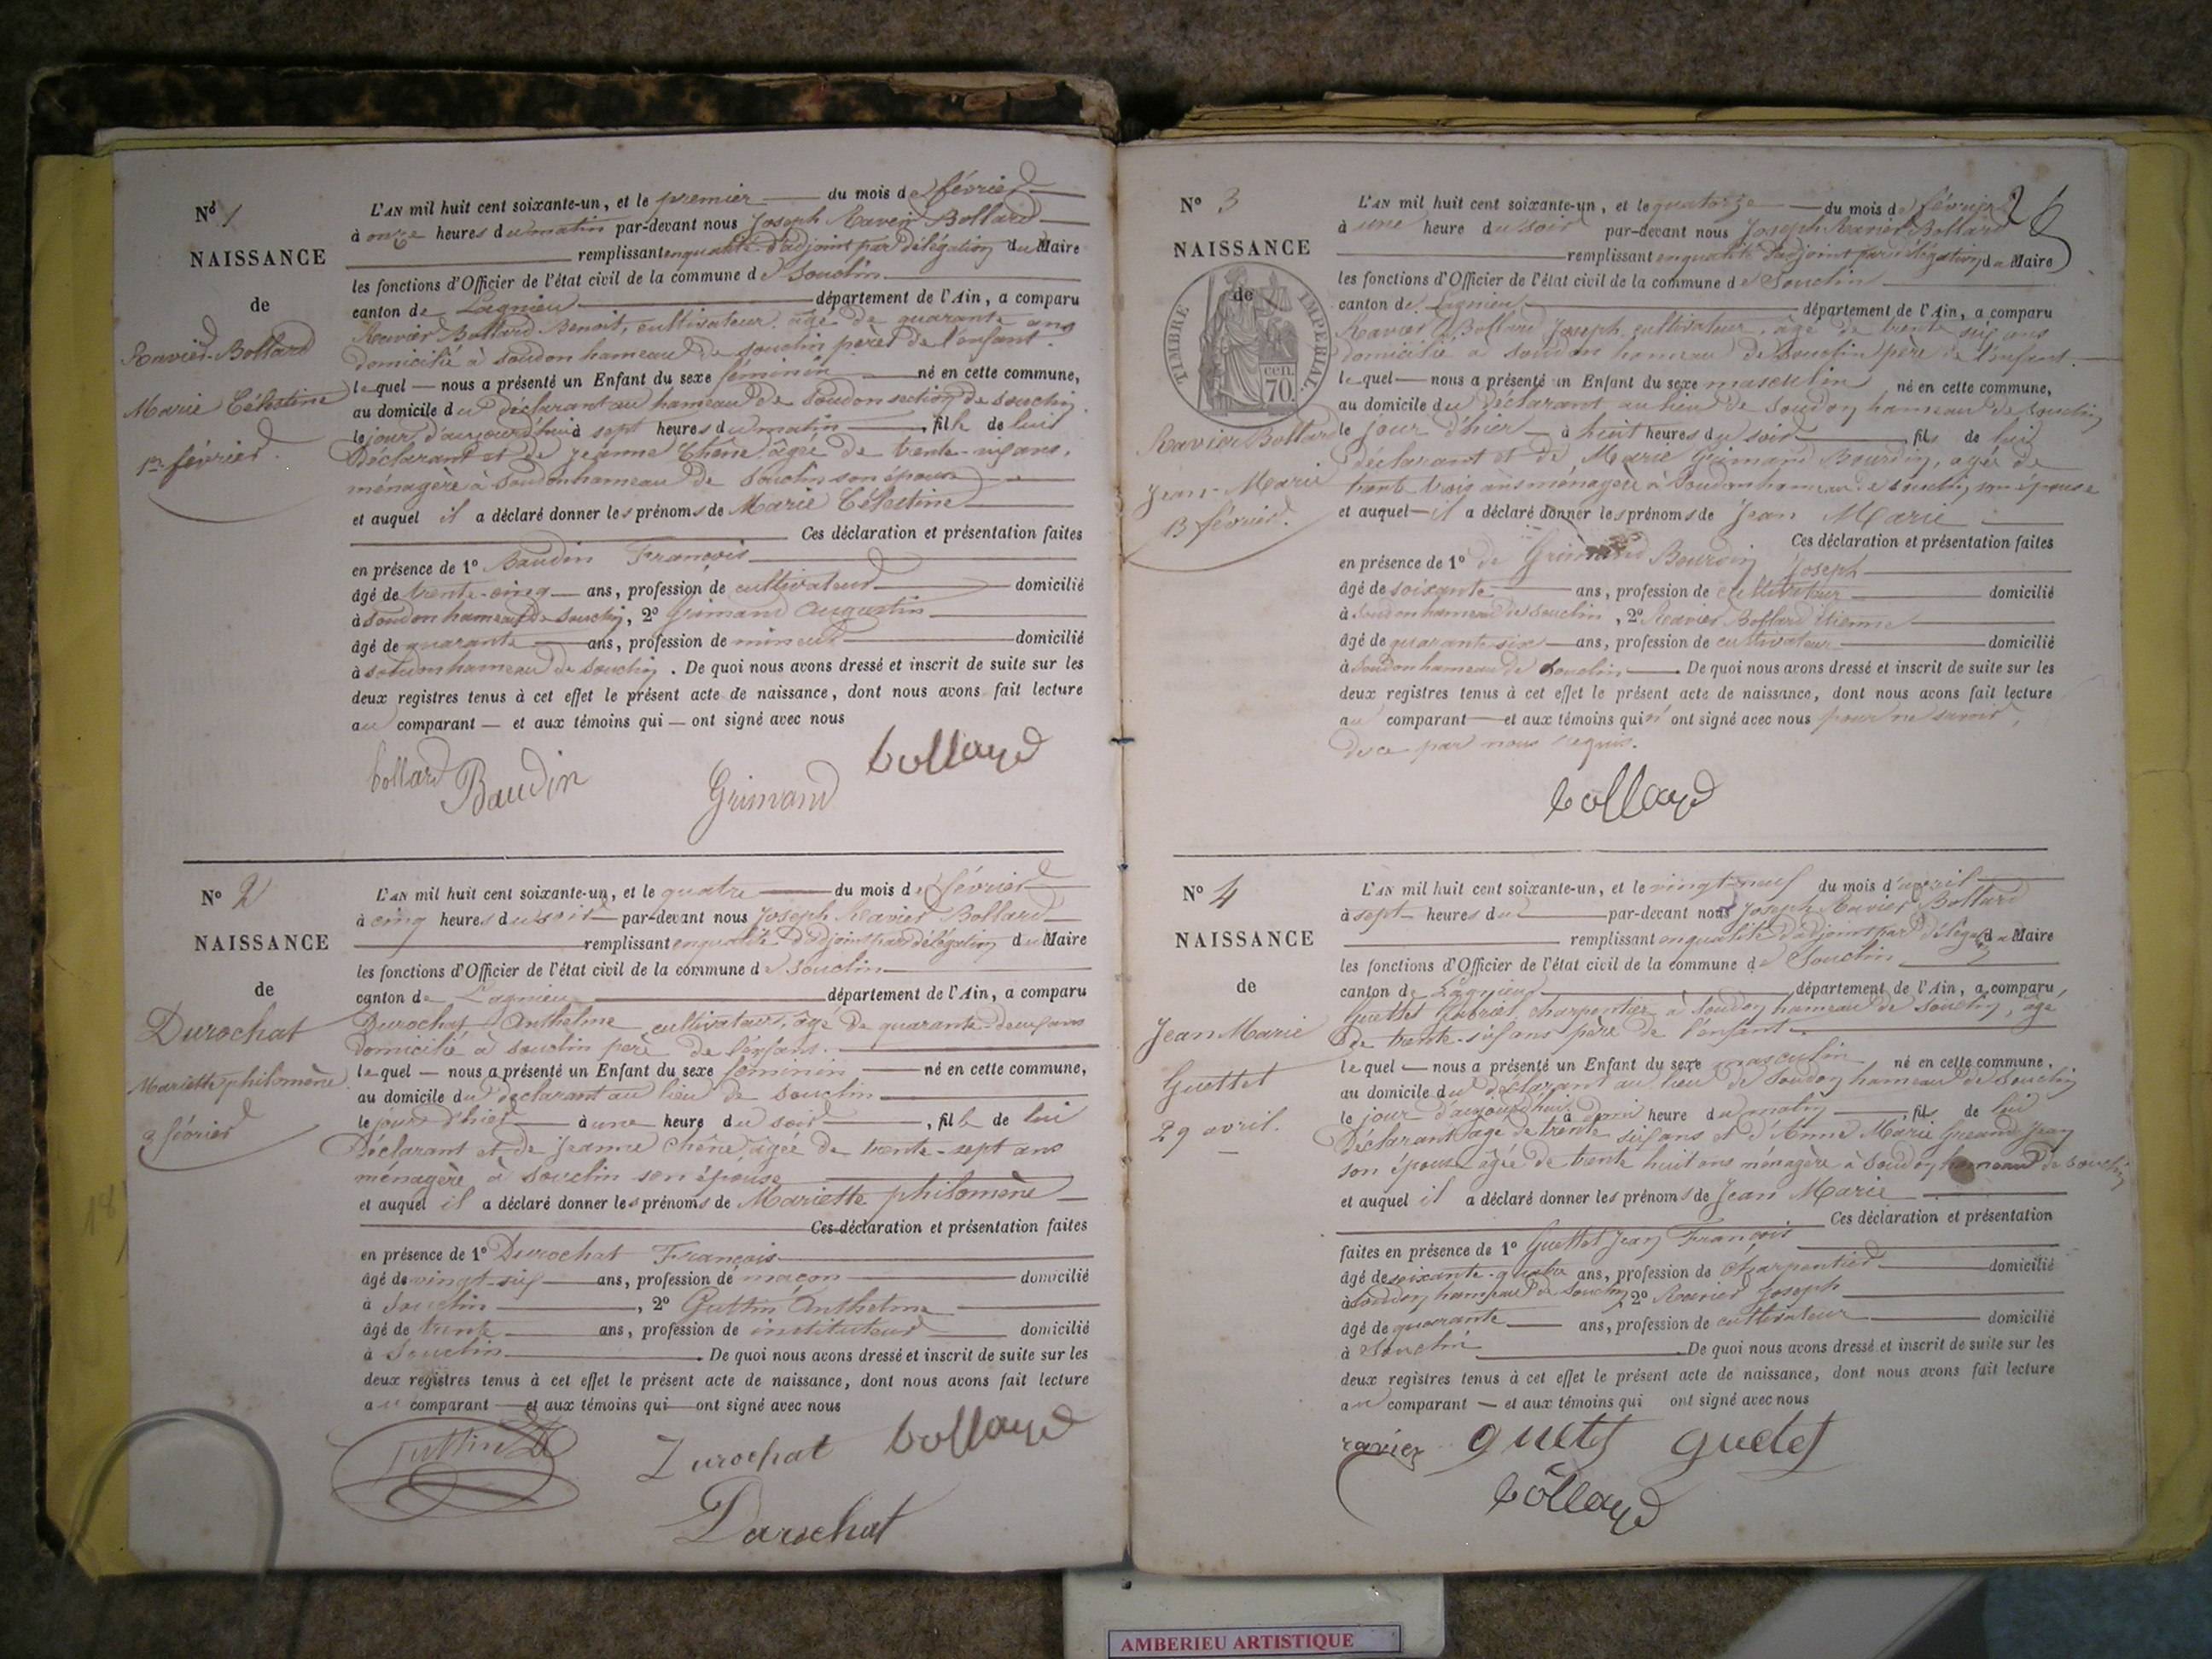 N° 1
NAISSANCE
de
Ravier-Bollard
Marie Célestine
1er février.
L'AN mil huit cent soixante-un, et le premier du mois de février
à onze heures du matin par-devant nous Joseph Ravier Bollard
remplissant en qualité d'adjoint par délégation du Maire
les fonctions d'Officier de l'état civil de la commune de Souclin
canton de Lagnieu département de l'Ain, a comparu
Ravier Bollard Benoit, cultivateur, âgé de quarante ans
domicilié à Soudon hameau de Souclin père de l'enfant.
lequel nous a présenté un Enfant du sexe féminin né en cette commune,
au domicile du déclarant au hameau de Soudon section de Souclin
le jour d'aujourd'hui à sept heures du matin, fille de lui
Déclarant et de Jeanne Chêne âgée de trente-six ans,
ménagère à Soudon hameau de Souclin son épouse
et auquel il a déclaré donner les prénoms de Marie Célestine
Ces déclaration et présentation faites
en présence de 1° Baudin François
âgé de trente-cinq ans, profession de cultivateur domicilié
à Soudon hameau de Souclin, 2° Grimand Augustin
âgé de quarante ans, profession de mineur domicilié
à Soudon hameau de Souclin. De quoi nous avons dressé et inscrit de suite sur les
deux registres tenus à cet effet le présent acte de naissance, dont nous avons fait lecture
au comparant et aux témoins qui ont signé avec nous
bollard Baudin Grimand bollard
N° 2
NAISSANCE
de
Durochat
Mariette philomène
3 février
L'AN mil huit cent soixante-un, et le quatre du mois de février
à cinq heures du soir par-devant nous Joseph Ravier Bollard
remplissant en qualité d'adjoint par délégation du Maire
les fonctions d'Officier de l'état civil de la commune de Souclin
canton de Lagnieu département de l'Ain, a comparu
Durochat Anthelme cultivateur, âgé de quarante-deux ans
domicilié à Souclin père de l'enfant.
lequel nous a présenté un Enfant du sexe féminin né en cette commune,
au domicile du déclarant au lieu de Souclin
le jour d'hier à une heure du soir, fille de lui
Déclarant et de Jeanne Chêne âgée de trente-sept ans
ménagère à Souclin son épouse
et auquel il a déclaré donner les prénoms de Mariette philomène
Ces déclaration et présentation faites
en présence de 1° Durochat François
âgé de vingt-six ans, profession de maçon domicilié
à Souclin, 2° Guttin Anthelme
âgé de trente ans, profession de instituteur domicilié
à Souclin. De quoi nous avons dressé et inscrit de suite sur les
deux registres tenus à cet effet le présent acte de naissance, dont nous avons fait lecture
au comparant et aux témoins qui ont signé avec nous
Guttin Durochat bollard
Darochat
N° 3
NAISSANCE
de
TIMBRE IMPÉRIAL
cen. 70.
Ravier Bollard
Jean-Marie
13 février.
L'AN mil huit cent soixante-un, et le quatorze du mois de février
à une heure du soir par-devant nous Joseph Ravier Bollard
remplissant en qualité d'adjoint par délégation du Maire
les fonctions d'Officier de l'état civil de la commune de Souclin
canton de Lagnieu département de l'Ain, a comparu
Ravier Bollard Joseph cultivateur, âgé de trente six ans
domicilié à Soudon hameau de Souclin père de l'enfant.
lequel nous a présenté un Enfant du sexe masculin né en cette commune,
au domicile du déclarant au lieu de Soudon hameau de Souclin
le jour d'hier à huit heures du soir, fils de lui
déclarant et de Marie Grimand Bourdin, âgée de
trente-trois ans ménagère à Soudon hameau de Souclin son épouse
et auquel il a déclaré donner les prénoms de Jean Marie
Ces déclaration et présentation faites
en présence de 1° de Grimand Bourdin Joseph
âgé de soixante ans, profession de cultivateur domicilié
à Soudon hameau de Souclin, 2° Ravier Bollard Etienne
âgé de quarante six ans, profession de cultivateur domicilié
à Soudon hameau de Souclin. De quoi nous avons dressé et inscrit de suite sur les
deux registres tenus à cet effet le présent acte de naissance, dont nous avons fait lecture
au comparant et aux témoins qui n'ont signé avec nous pour ne savoir,
de ce par nous requis.
bollard
N° 4
NAISSANCE
de
Jean Marie
Guettet
29 avril.
L'AN mil huit cent soixante-un, et le vingt-neuf du mois d'avril
à sept heures du par-devant nous Joseph Ravier Bollard
remplissant en qualité d'adjoint par délégation du Maire
les fonctions d'Officier de l'état civil de la commune de Souclin
canton de Lagnieu département de l'Ain, a comparu
Guettet Gabriel, charpentier à Soudon hameau de Souclin, âgé
de trente-six ans père de l'enfant.
lequel nous a présenté un Enfant du sexe masculin, né en cette commune,
au domicile du déclarant au lieu de Soudon hameau de Souclin
le jour d'aujourd'hui à demi heure du matin, fils de lui
Déclarant âgé de trente six ans et d'Anne Marie Jean
son épouse âgée de trente huit ans ménagère à Soudon hameau de Souclin
et auquel il a déclaré donner les prénoms de Jean Marie
Ces déclaration et présentation
faites en présence de 1° Guettet Jean François
âgé de soixante-quatre ans, profession de charpentier domicilié
à Soudon hameau de Souclin, 2° Ravier Joseph
âgé de quarante ans, profession de cultivateur domicilié
à Souclin. De quoi nous avons dressé et inscrit de suite sur les
deux registres tenus à cet effet le présent acte de naissance, dont nous avons fait lecture
au comparant et aux témoins qui ont signé avec nous
ravier guetet guetet
bollard
AMBERIEU ARTISTIQUE